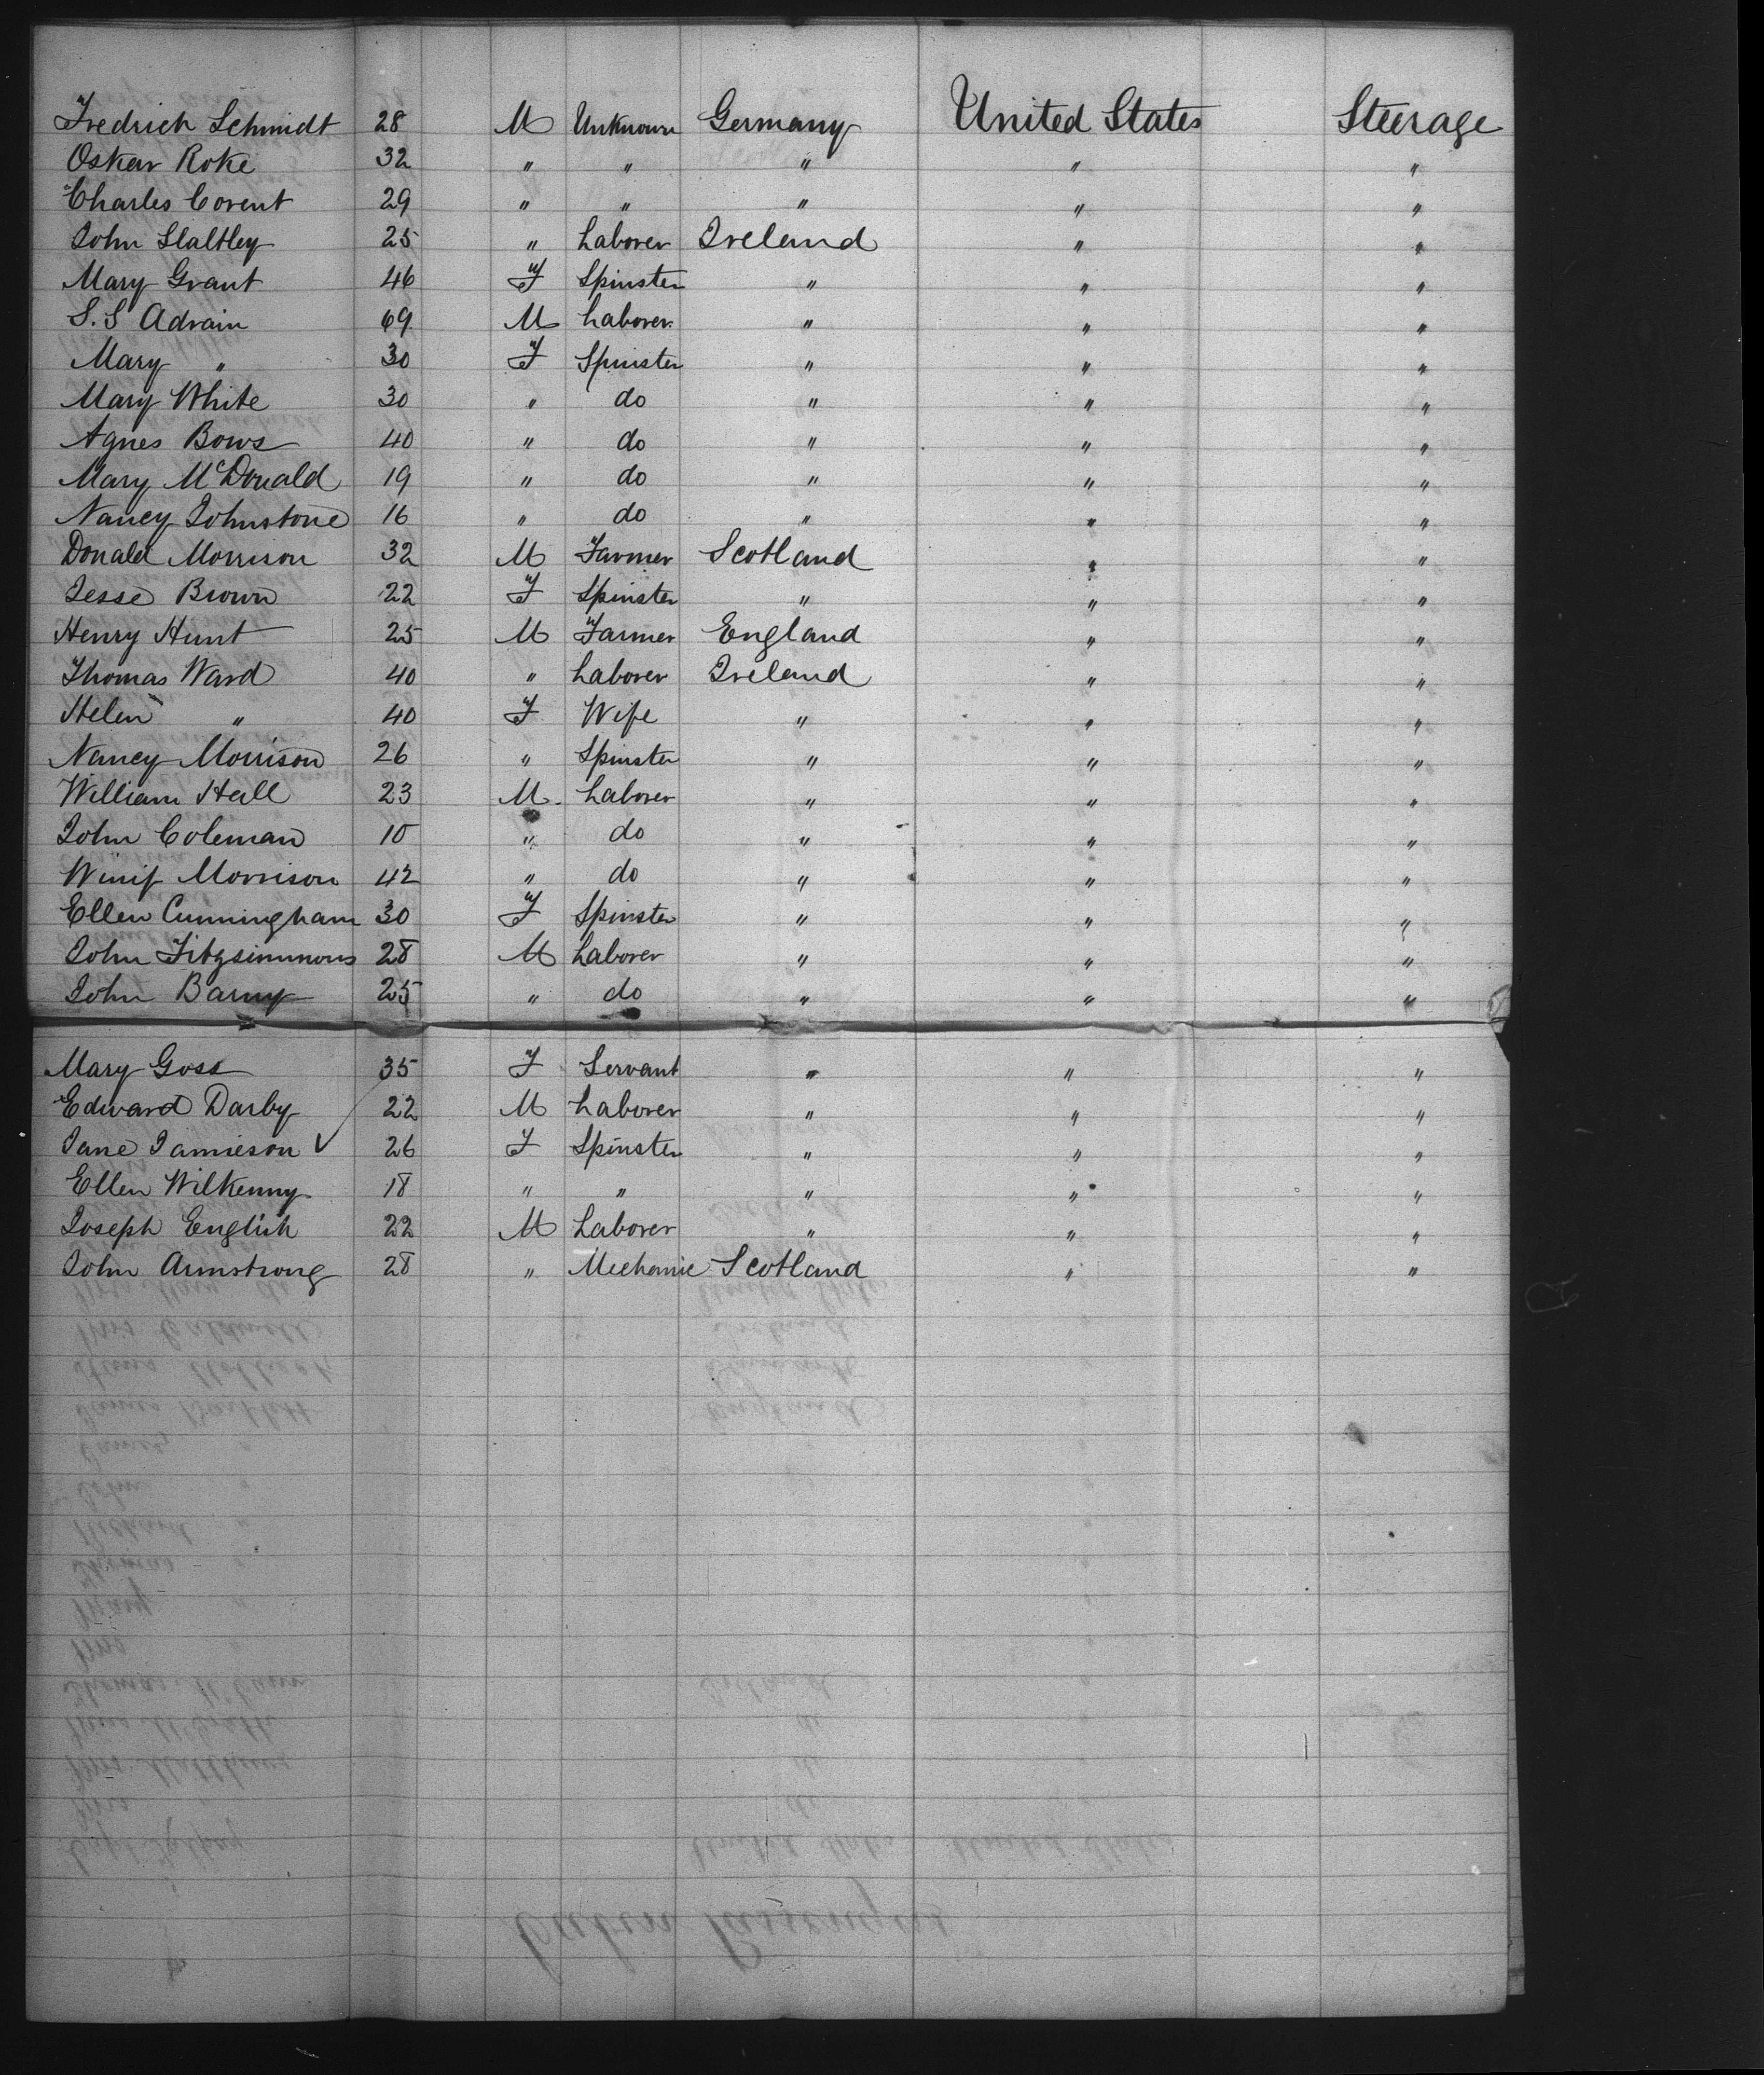 Fredrich Schmidt 28 M Unknown Germany United States Steerage
Oskar Roke 32 " " " " "
Charles Covent 29 " " " " "
John Slattley 25 " Laborer Ireland " "
Mary Grant 46 F Spinster " " "
S.S Advain 69 M Laborer " " "
Mary " 30 F Spinster " " "
Mary White 30 " do " " "
Agnes Bows 40 " do " " "
Mary McDonald 19 " do " " "
Nancy Johnstone 16 " do " " "
Donald Morrison 32 M Farmer Scotland " "
Jesse Brown 22 F Spinster " " "
Henry Hunt 25 M Farmer England " "
Thomas Ward 40 " Laborer Ireland " "
Helen " 40 F Wife " " "
Nancy Morrison 26 " Spinster " " "
William Hall 23 M. Laborer " " "
John Coleman 10 " do " " "
Winif Morrison 42 " do " " "
Ellen Cunningham 30 F Spinster " " "
John Fitzsimmons 28 M Laborer " " "
John Barny 25 " do " " "
Mary Goss 35 F Servant " " "
Edward Darby 22 M Laborer " " "
Jane Jamieson ✓ 26 F Spinster " " "
Ellen Wilkenny 18 " " " " "
Joseph English 22 M Laborer " " "
John Armstrong 28 " Mechanic Scotland " "